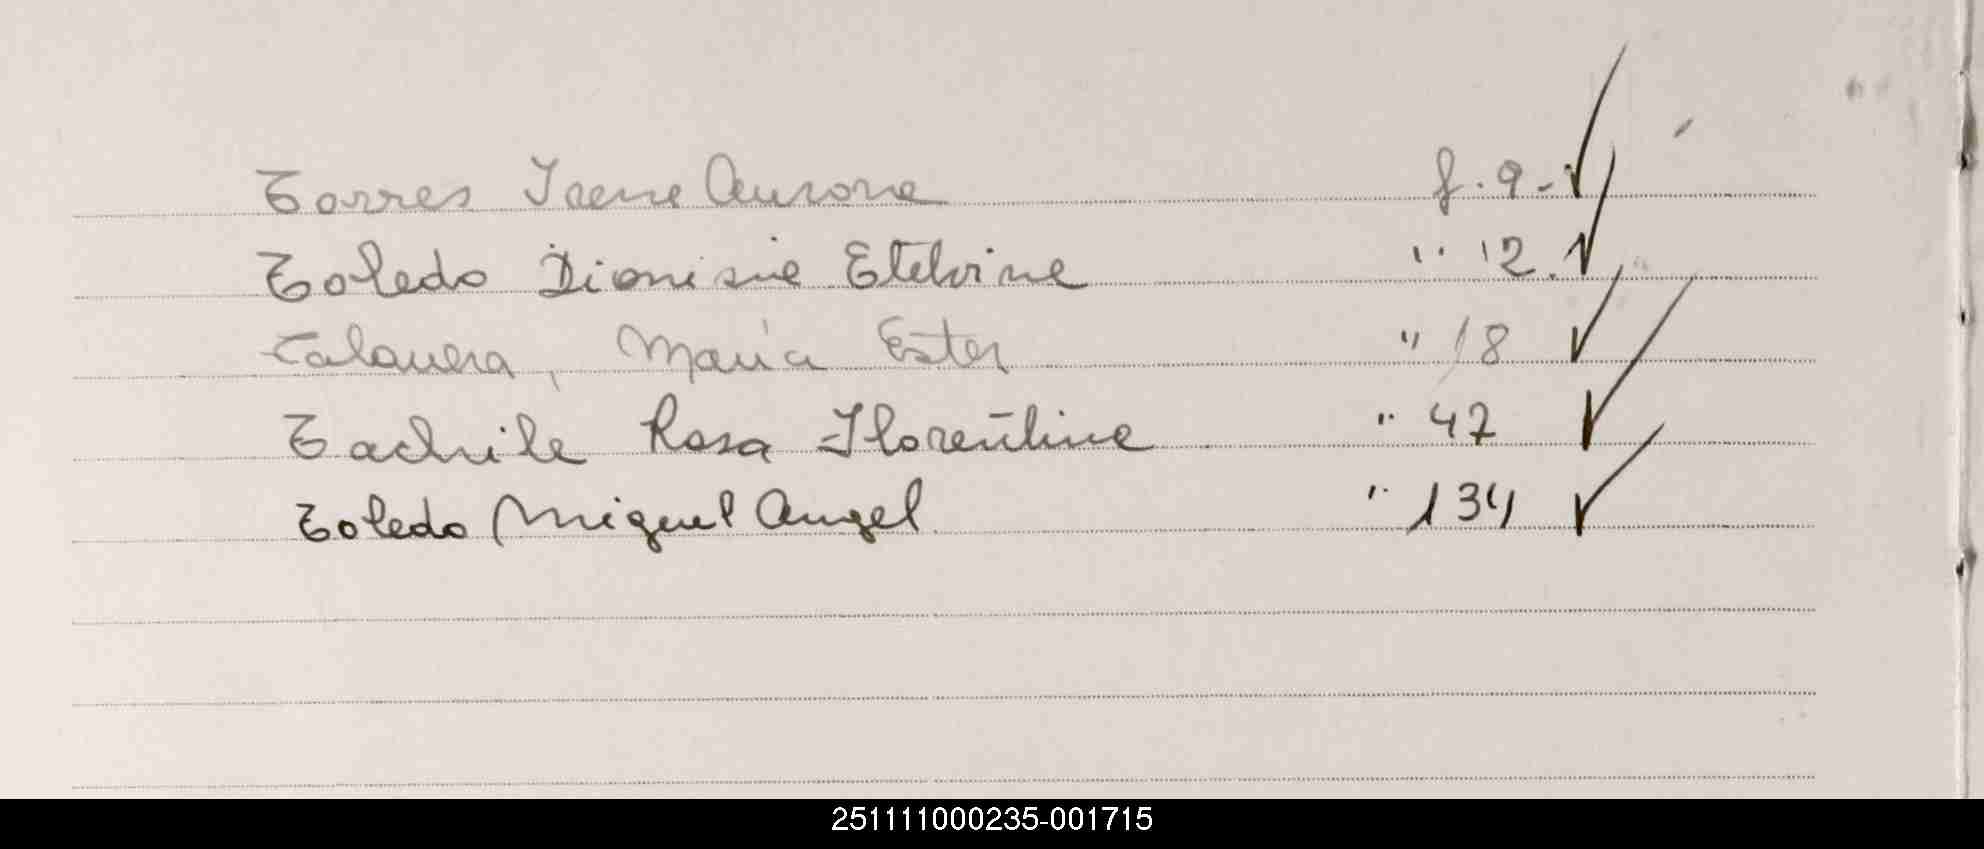 Torres Irene Aurora f. 9. ✓
Toledo Dionisia Etelvina " 12. ✓
Talavera, María Ester " 18 ✓
Tachile Rosa Florentina " 47 ✓
Toledo Miguel Angel " 134 ✓
251111000235-001715